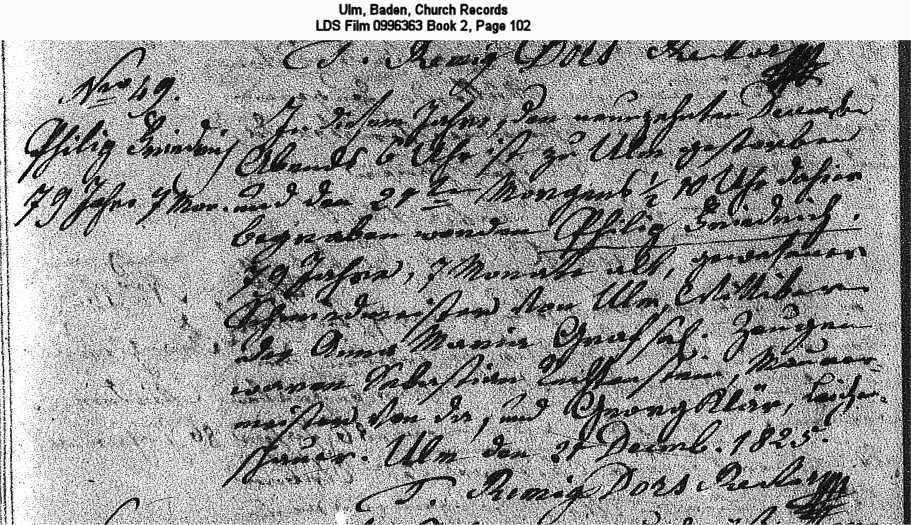 Ulm, Baden, Church Records
LDS Film 0996363 Book 2, Page 102
T. Remig Dors Rector
Nro 49.
Philip Friedrich
79 Jahre 7 Mon.
In diesem Jahre, den neunzehnten December
Abends 6 Uhr ist zu Ulm gestorben
und den 21ten Morgens ½ 10 Uhr dahier
begraben worden Philip Friedrich,
79 Jahre, 7 Monate alt, gewesener
Schmidmeister von Ulm, Wittiber
der Anna Maria Graf sel. Zeugen
waren Sebastian Lichtenstein, Maurer-
meister von da, und Georg Klär, Leichen-
schauer. Ulm den 21 Decemb. 1825.
T. Remig Dors Rector